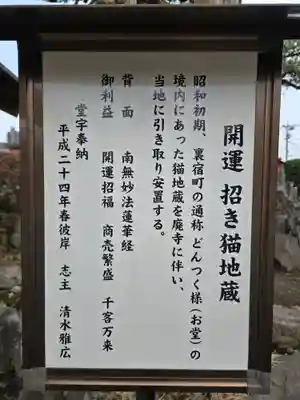 開運 招き猫地蔵
昭和初期、裏宿町の通称 どんつく様(お堂)の
境内にあった猫地蔵を廃寺に伴い、
当地に引き取り安置する。
背面 南無妙法蓮華経
御利益 開運招福 商売繁盛 千客万来
堂宇奉納
平成二十四年春彼岸 志主 清水雅広